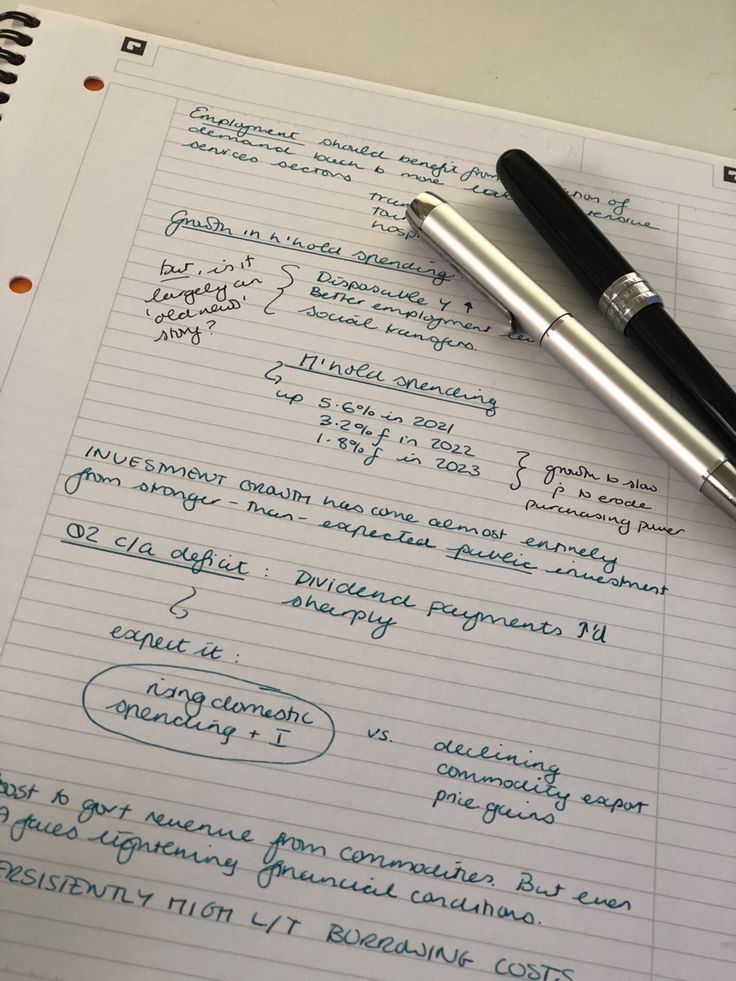 Employment should benefit from
demand back to more
services sectors
Growth in h'hold spending
but, is it
largely an
'old news'
story?
Disposable Y ↑
Better employment
social transfers.
H'hold spending
up 5.6% in 2021
3.2% f in 2022
1.8% f in 2023
growth to slow
ṗ to erode
purchasing power
INVESTMENT GROWTH has come almost entirely
from stronger-than-expected public investment
Q2 c/a deficit : Dividend payments ↑'d
sharply
expect it :
rising domestic
spending + I
vs.
declining
commodity export
price gains
to govt revenue from commodities. But even
faces tightening financial conditions.
HIGH L/T BORROWING COSTS